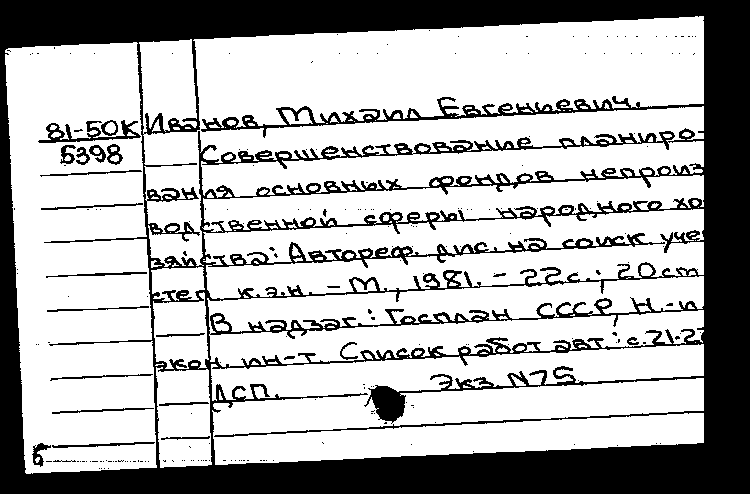 81-50К Иванов, Михаил Евгениевич.
5398 Совершенствование планиро-
вания основных фондов непроиз
водственной сферы народного хо
зяйства: Автореф. дис. на соиск. уче
степ к.э.н. - М., 1981. - 22с.; 20ст
В надзаг.: Госплан СССР, Н.-и.
экон. ин-т. Список работ авт.: с.21-22
ДСП. Экз. N75.
б